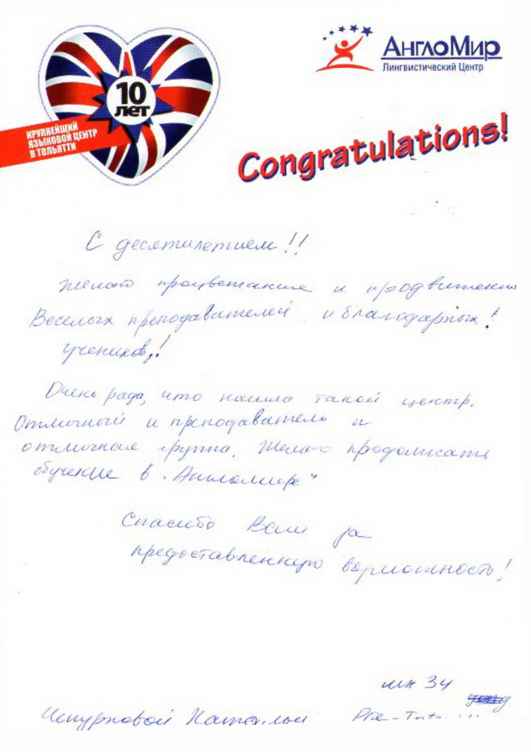 10
лет
КРУПНЕЙШИЙ
ЯЗЫКОВОЙ ЦЕНТР
В ТОЛЬЯТТИ
АнглоМир
Лингвистический Центр
Congratulations!
С десятилетием!!
Желаю процветание и продвижению
Веселых преподавателей и благодарных!
учеников!
Очень рада, что нашла такой центр.
Отличный и преподаватель и
отличная группа. Желаю продолжать
обучение в „Англомире"
Спасибо Вам за
предоставленную возможность!
34
Натальи
Pre-